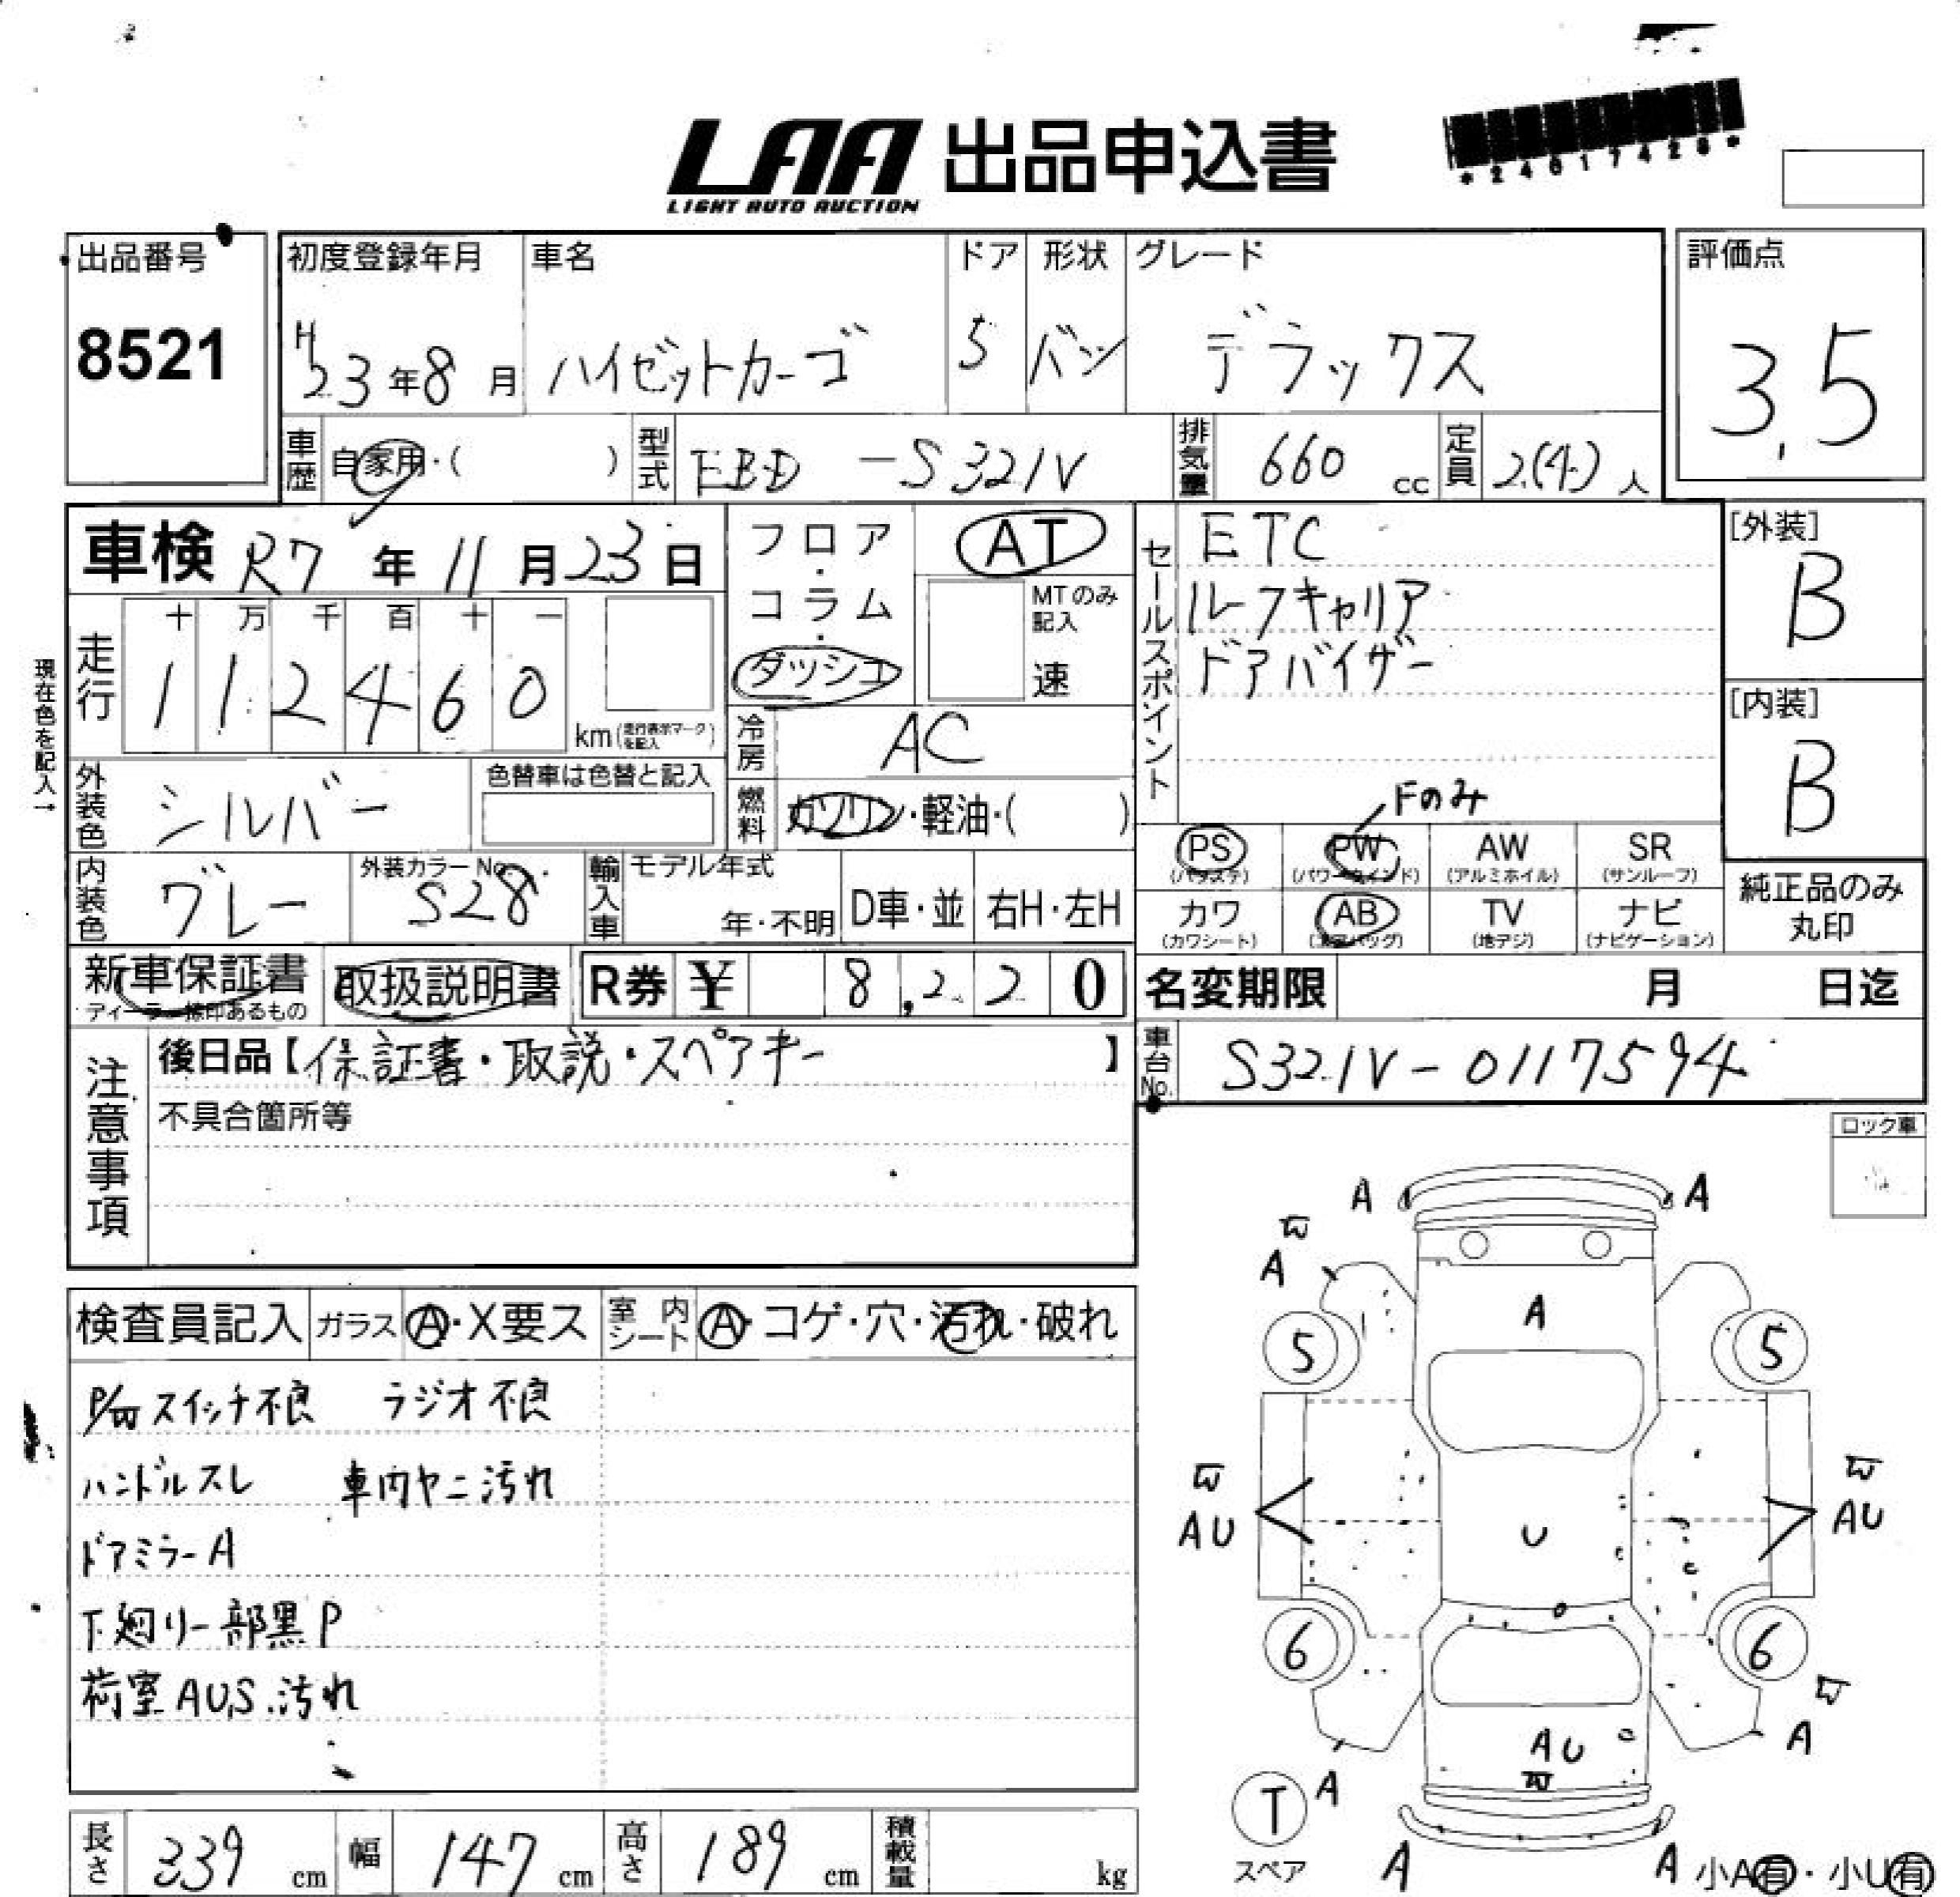 LAA 出品申込書
LIGHT AUTO AUCTION
出品番号
8521
初度登録年月
H23年8月
車名
ハイゼットカーゴ
ドア
5
形状
バン
グレード
デラックス
評価点
3.5
車歴 自家用・( )
型式 EBD-S321V
排気量 660 cc
定員 2.(4) 人
車検 R7年11月23日
現在色を記入→
走行
十 万 千 百 十 一
1 1 2 4 6 0
km(走行表示マークを記入)
フロア・コラム・ダッシュ
AT
MTのみ記入
速
冷房 AC
燃料 ガソリン・軽油・( )
外装色 シルバー
色替車は色替と記入
内装色 グレー
外装カラーNo.
S28
輸入車
モデル年式
年・不明
D車・並
右H・左H
セールスポイント
ETC
ルーフキャリア
ドアバイザー
Fのみ
PS PW AW SR
(パワステ) (パワーウインド) (アルミホイル) (サンルーフ)
カワ AB TV ナビ
(カワシート) (エアバッグ) (地デジ) (ナビゲーション)
[外装]
B
[内装]
B
純正品のみ
丸印
新車保証書
ディーラー捺印あるもの
取扱説明書
R券 ¥ 8,220
名変期限 月 日迄
車台No. S321V-0117594
注意事項
後日品【保証書・取説・スペアキー】
不具合箇所等
ロック車
検査員記入
ガラス A・X要ス
室内シート A・コゲ・穴・汚れ・破れ
P/W スイッチ不良 ラジオ不良
ハンドルスレ 車内ヤニ汚れ
ドアミラーA
下廻り一部黒P
荷室AU,S.汚れ
A A
W
A
A
5 5
W W
AU AU
U
6 6
W
A
AU
W
T A
スペア
A A
小A有・小U有
長さ 339 cm
幅 147 cm
高さ 189 cm
積載量 kg